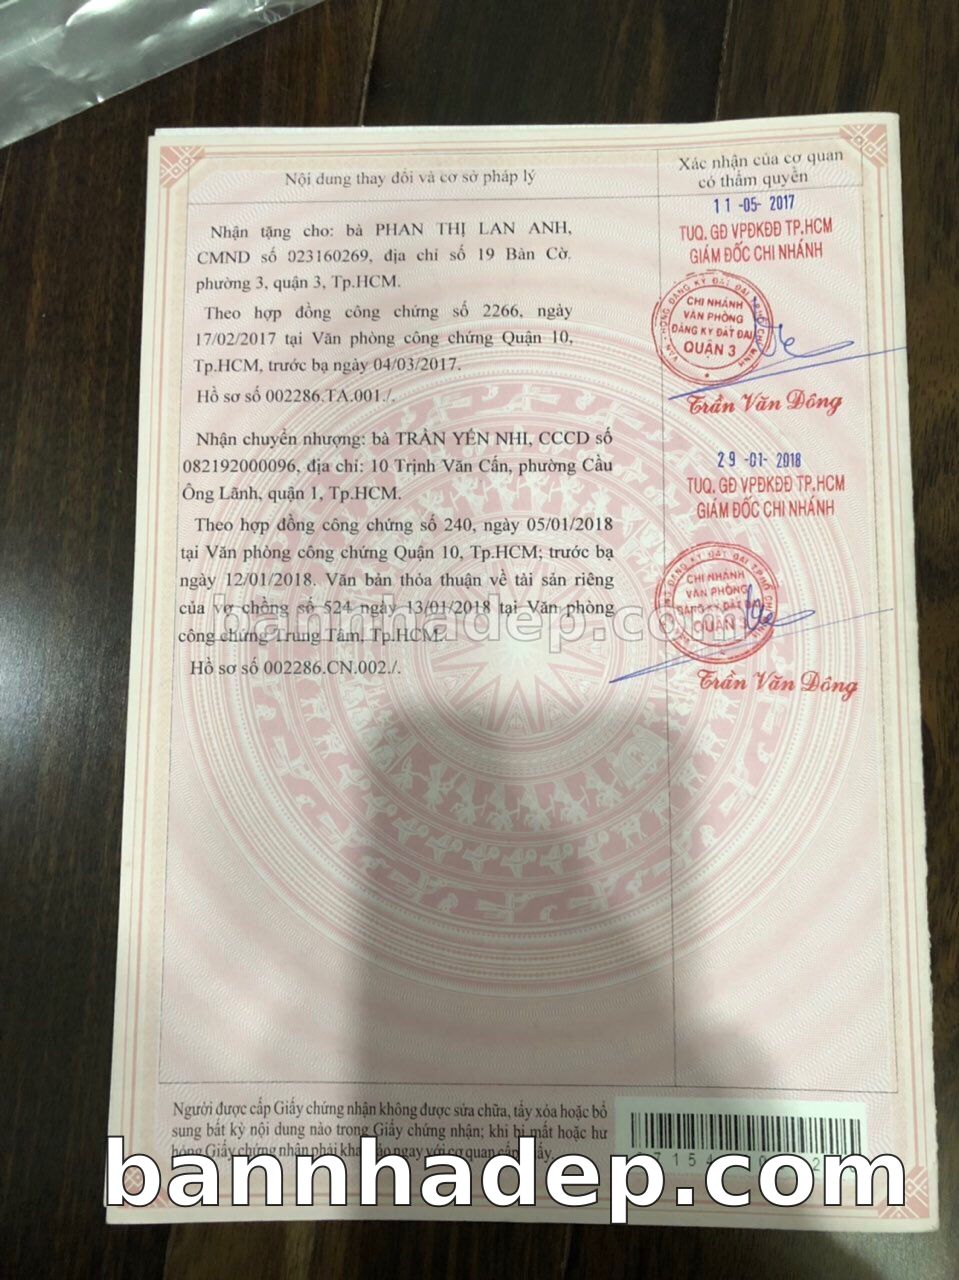 Nội dung thay đổi và cơ sở pháp lý
Xác nhận của cơ quan
có thẩm quyền
Nhận tặng cho: bà PHAN THỊ LAN ANH,
CMND số 023160269, địa chỉ số 19 Bàn Cờ,
phường 3, quận 3, Tp.HCM.
Theo hợp đồng công chứng số 2266, ngày
17/02/2017 tại Văn phòng công chứng Quận 10,
Tp.HCM, trước bạ ngày 04/03/2017.
Hồ sơ số 002286.TA.001./.
11 -05- 2017
TUQ. GĐ VPĐKĐĐ TP.HCM
GIÁM ĐỐC CHI NHÁNH
CHI NHÁNH
VĂN PHÒNG
ĐĂNG KÝ ĐẤT ĐAI
QUẬN 3
Trần Văn Dông
Nhận chuyển nhượng: bà TRẦN YẾN NHI, CCCD số
082192000096, địa chỉ: 10 Trịnh Văn Cấn, phường Cầu
Ông Lãnh, quận 1, Tp.HCM.
Theo hợp đồng công chứng số 240, ngày 05/01/2018
tại Văn phòng công chứng Quận 10, Tp.HCM; trước bạ
ngày 12/01/2018. Văn bản thỏa thuận về tài sản riêng
của vợ chồng số 524 ngày 13/01/2018 tại Văn phòng
công chứng Trung Tâm, Tp.HCM.
Hồ sơ số 002286.CN.002./.
29 -01- 2018
TUQ. GĐ VPĐKĐĐ TP.HCM
GIÁM ĐỐC CHI NHÁNH
CHI NHÁNH
VĂN PHÒNG
ĐĂNG KÝ ĐẤT ĐAI
QUẬN 3
Trần Văn Dông
bannhadep.com
Người được cấp Giấy chứng nhận không được sửa chữa, tẩy xóa hoặc bổ
sung bất kỳ nội dung nào trong Giấy chứng nhận; khi bị mất hoặc hư
hỏng Giấy chứng nhận phải khai báo ngay với cơ quan cấp Giấy.
bannhadep.com